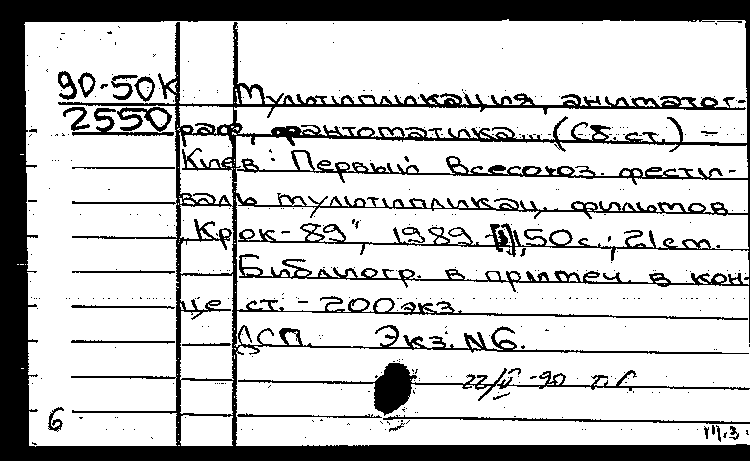 90-50К
2550
Мультипликация, аниматог-
раф, фантоматика... (Сб. ст.) –
Киев: Первый Всесоюз. фести-
валь мультипликац. фильмов
„Крок-89", 1989. - 150 с.; 21 см.
Библиогр. в примеч. в кон-
це ст. - 200 экз.
ДСП. Экз. N6.
22/V -90
6